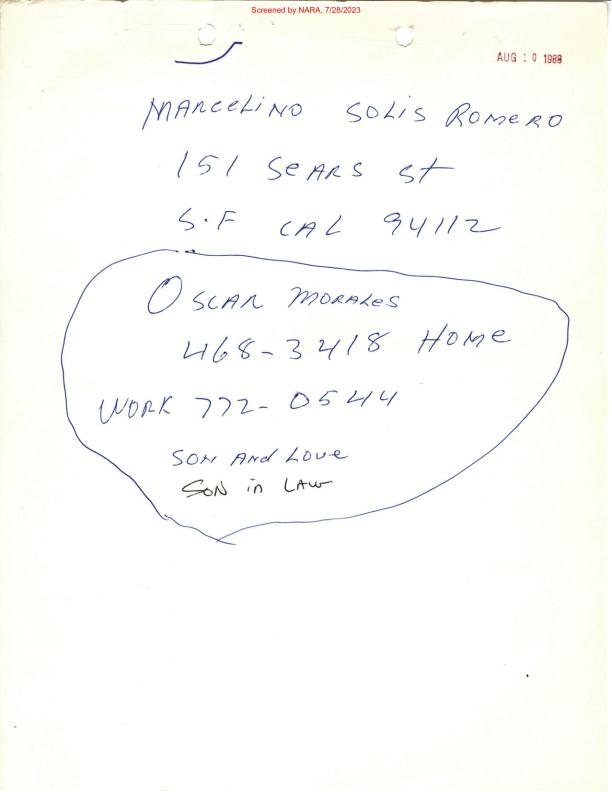 Screened by NARA, 7/28/2023
AUG 10 1988
MARCELINO SOLIS ROMERO
151 SEARS St
S.F CAL 94112
OSCAR MORALES
468-3418 HOME
WORK 772-0544
SON ANd LOVE
SON in LAW